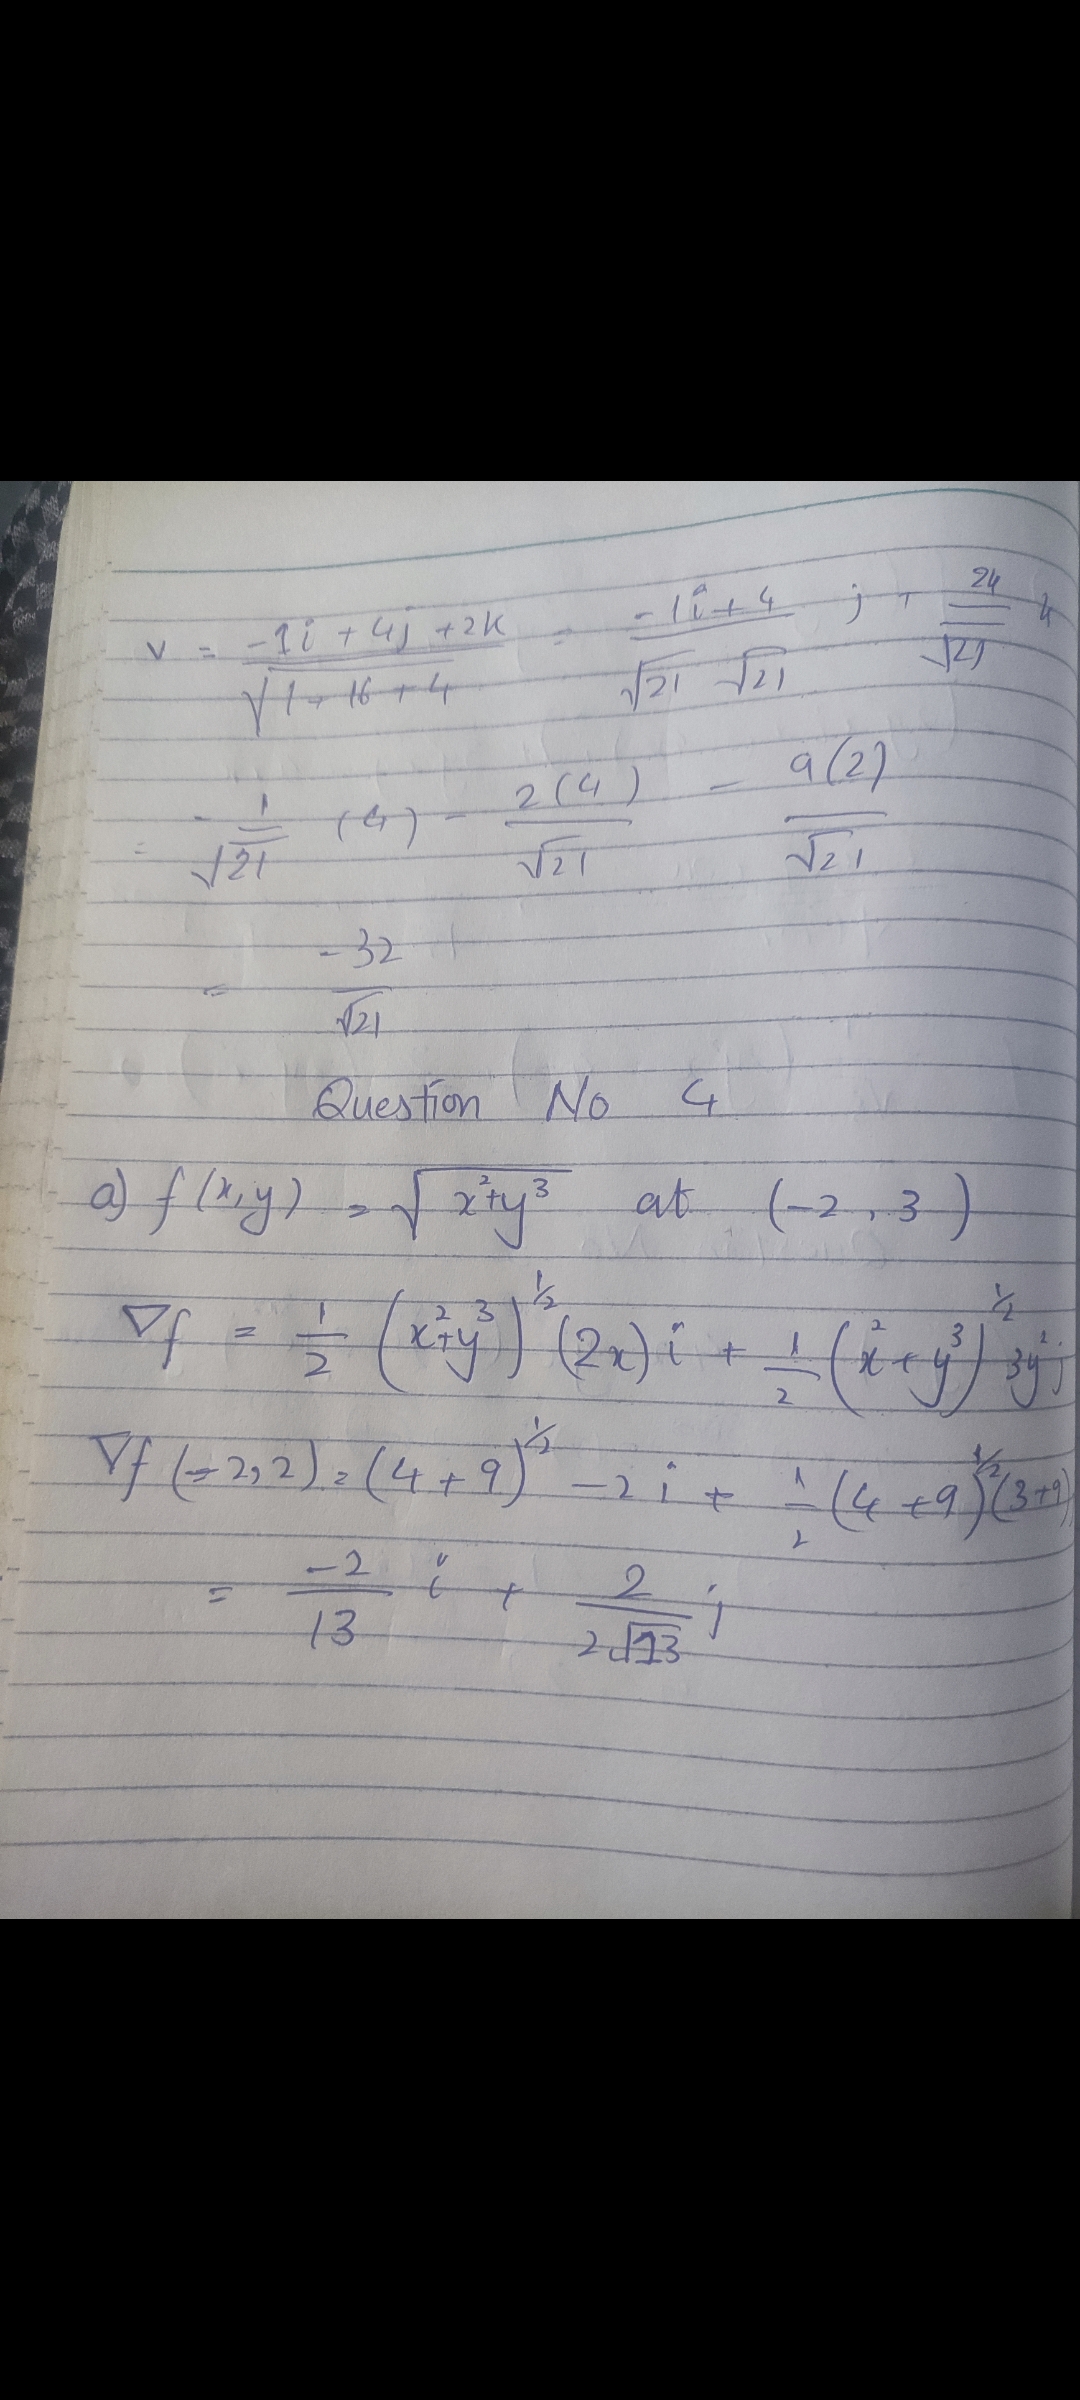 v = -1i + 4j + 2k / √1+16+4 = -1i + 4 / √21 √21 j + 24 / √21
= - 1/√21 (4) - 2(4)/√21 - 9(2)/√21
= -32/√21
Question No 4
a) f(x,y) = √x²+y³ at (-2, 3)
∇f = 1/2 (x²+y³)^1/2 (2x) i + 1/2 (x²+y³)^1/2 3y² j
∇f (-2,2) = (4+9)^1/2 -2 i + 1/2 (4+9)^1/2 (3+9)
= -2/13 i + 2/2√13 j